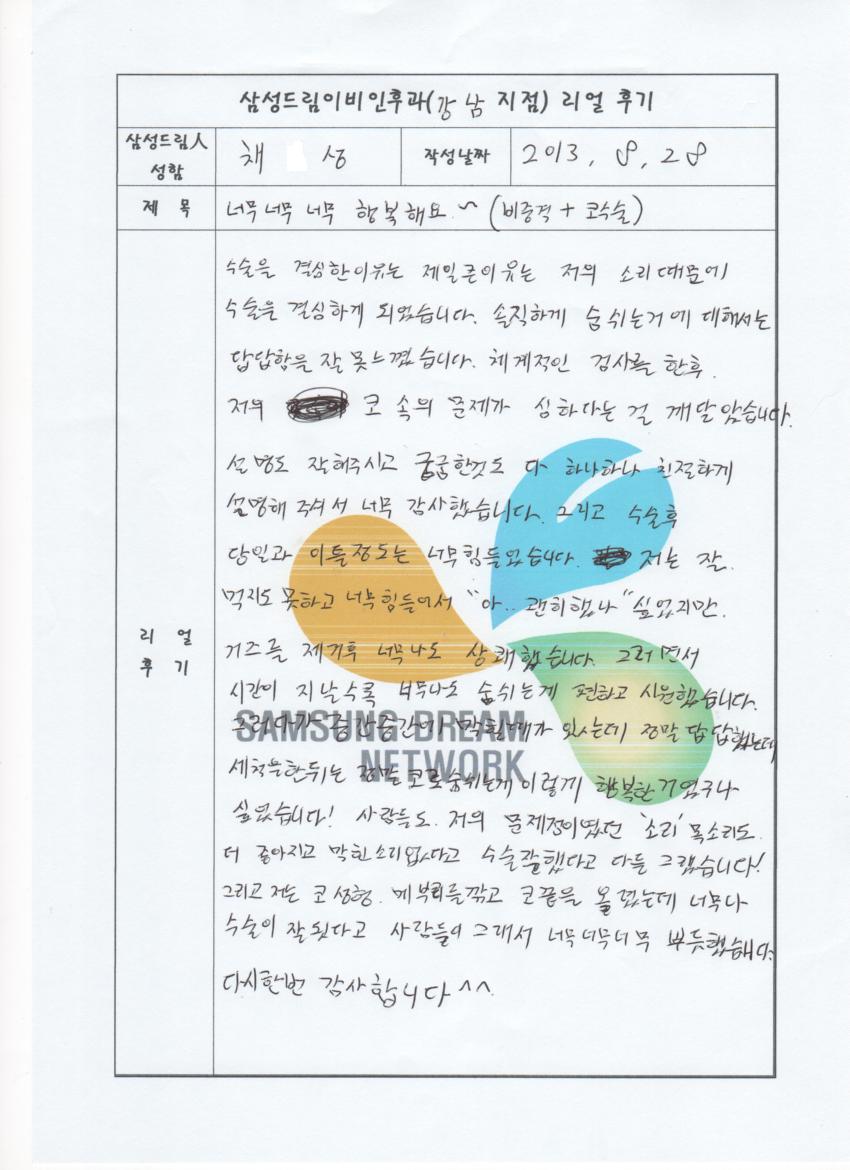 삼성드림이비인후과(강남 지점) 리얼 후기
삼성드림人 성함 채 성 작성날짜 2013. 8. 28
제 목 너무너무 너무 행복해요~ (비중격 + 코수술)
리 얼 후 기
수술을 결심한이유는 제일큰이유는 저의 소리때문에
수술을 결심하게 되었습니다. 솔직하게 숨쉬는거에 대해서는
답답함을 잘 못느꼈습니다. 체계적인 검사를 한후.
저의 코 속의 문제가 심하다는 걸 깨달았습니다.
설명도 잘해주시고 궁금한것도 다 하나하나 친절하게
설명해 주셔서 너무 감사했습니다. 그리고 수술후
당일과 이틀정도는 너무힘들었습니다. 저는 잘.
먹지도 못하고 너무힘들어서 "아.. 괜히했나" 싶었지만.
거즈를 제거후 너무나도 상쾌했습니다. 그러면서
시간이 지날수록 너무나도 숨쉬는게 편하고 시원했습니다.
그러다가 중간중간에 막힐때가 있는데 정말 답답했는데
세척을한뒤는 정말 코로숨쉬는게 이렇게 행복한거였구나
싶었습니다! 사람들도. 저의 문제점이였던 '소리' 목소리도.
더 좋아지고 막힌소리없다고 수술잘했다고 다들 그랬습니다!
그리고 저는 코성형. 메부리를깎고 코끝을 올렸는데 너무나
수술이 잘됬다고 사람들이 그래서 너무너무너무 뿌듯했습니다.
다시한번 감사합니다 ^^
SAMSUNG DREAM
NETWORK